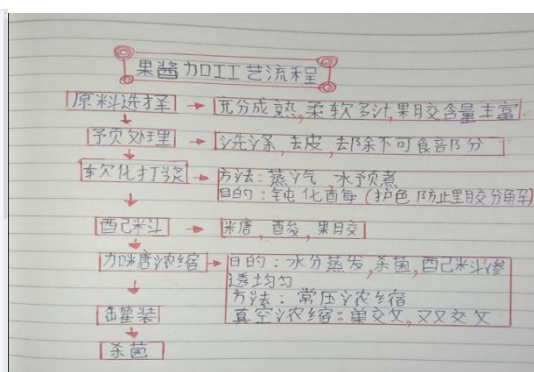 果酱加工工艺流程
原料选择 → 充分成熟,柔软多汁,果胶含量丰富
予页处理 → 洗涤,去皮,去除不可食部分
软化打浆 → 方法:蒸汽 水预煮
目的:钝化酶(护色防止果胶分解)
配料 → 糖,酸,果胶
加糖浓缩 → 目的:水分蒸发,杀菌,配料渗
透均匀
方法:常压浓缩
真空浓缩:单效,双效
罐装
杀菌